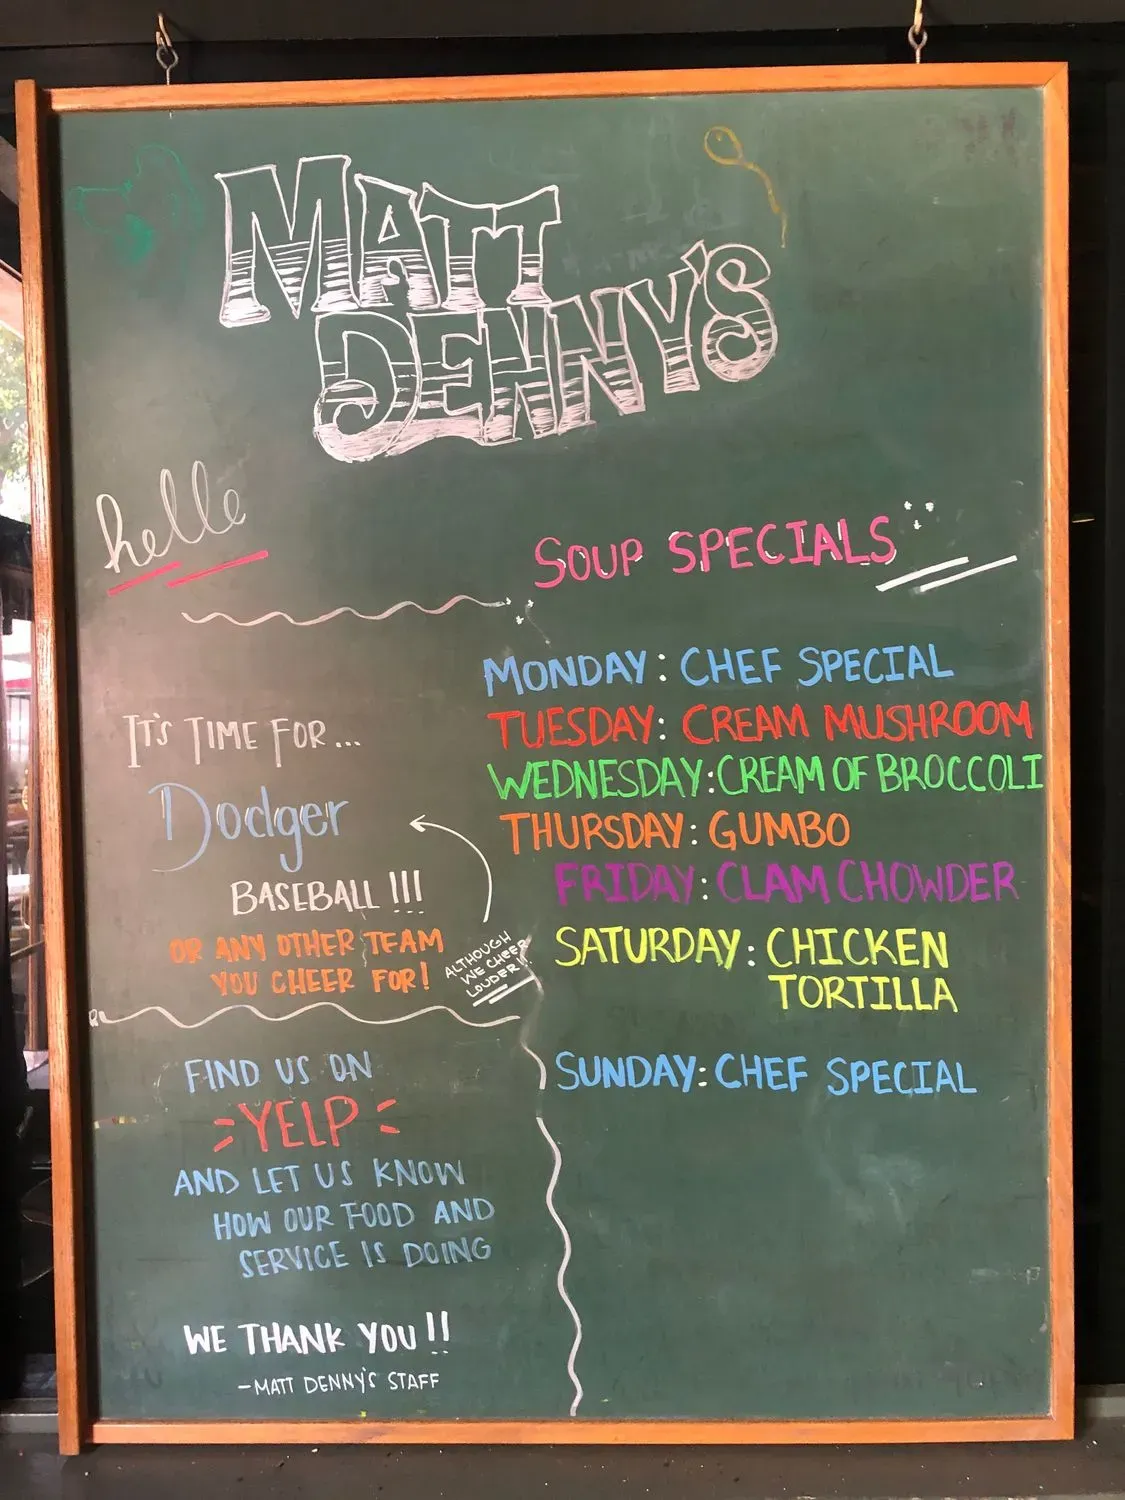 MATT
DENNY'S
hello
IT'S TIME FOR...
Dodger
BASEBALL !!!
OR ANY OTHER TEAM
YOU CHEER FOR!
ALTHOUGH
WE CHEER
LOUDER!!
FIND US ON
YELP
AND LET US KNOW
HOW OUR FOOD AND
SERVICE IS DOING
WE THANK YOU!!
-MATT DENNY'S STAFF
SOUP SPECIALS
MONDAY: CHEF SPECIAL
TUESDAY: CREAM MUSHROOM
WEDNESDAY: CREAM OF BROCCOLI
THURSDAY: GUMBO
FRIDAY: CLAM CHOWDER
SATURDAY: CHICKEN
TORTILLA
SUNDAY: CHEF SPECIAL